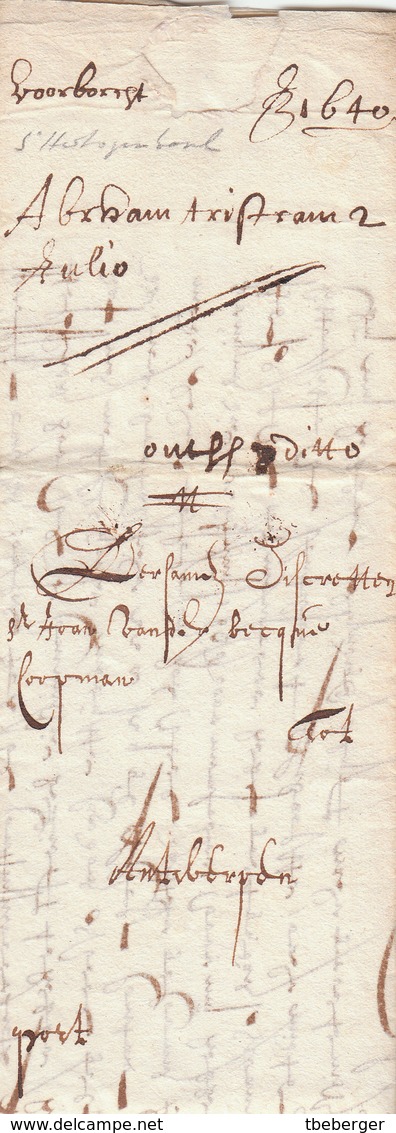 Voorborcht A 1640
S'Hertogenbosch
Abraham tristram 2
Julio
ontfh ditto
Eersame Discretten
Sr Joan Vander becque
Coopman
Tot
Antwerpen
port
www.delcampe.net
tberger